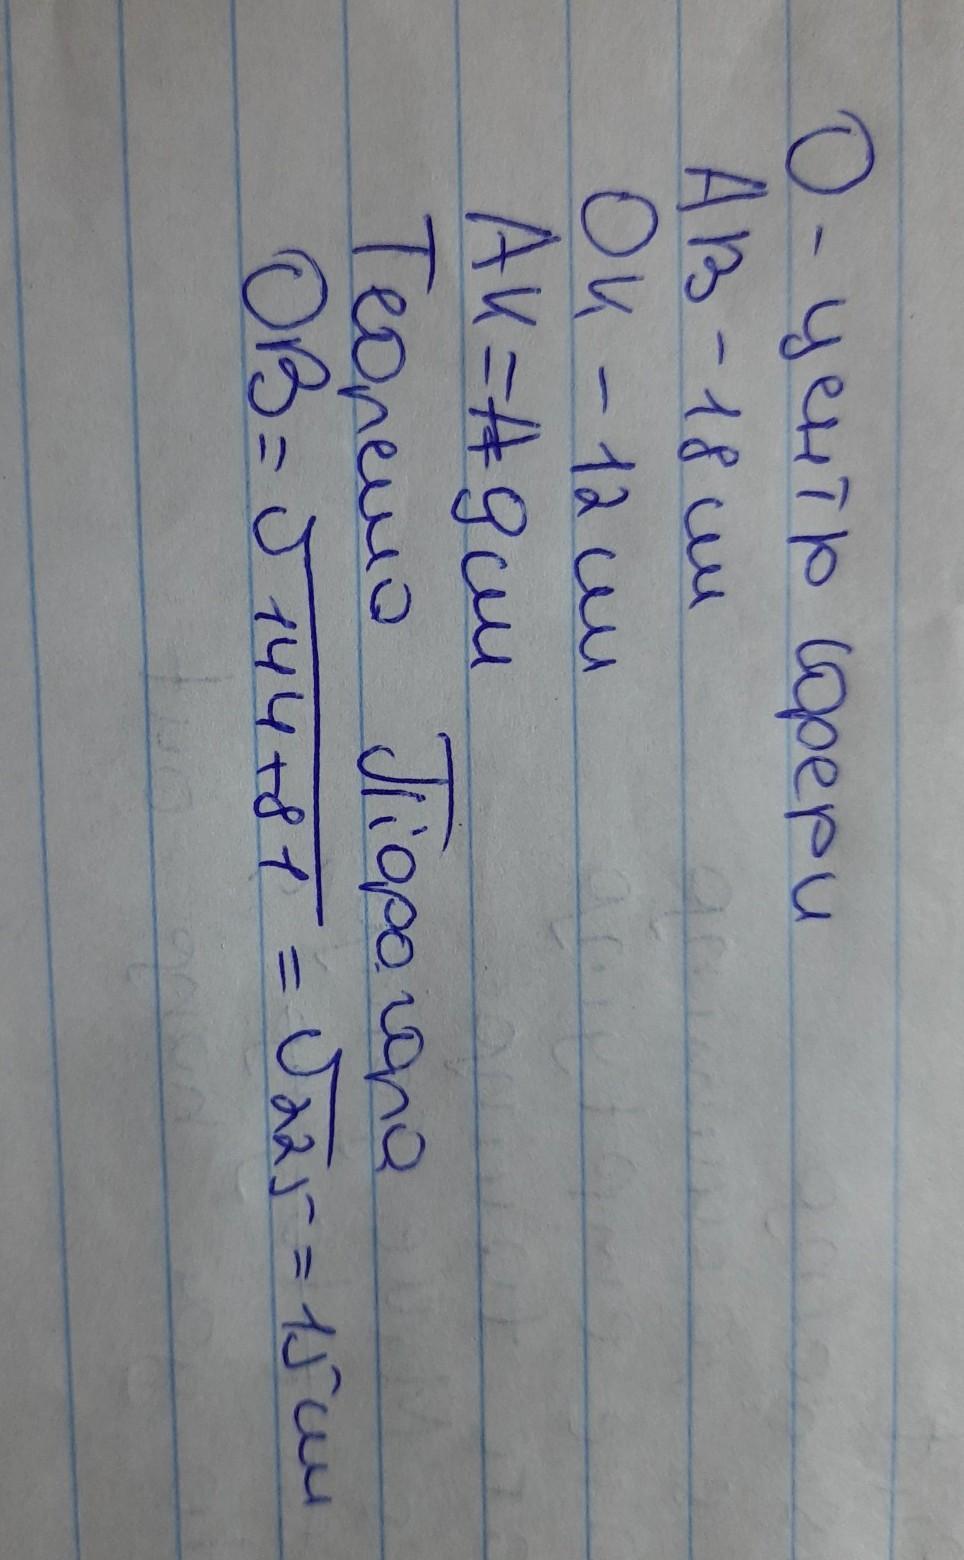 О - центр сфери
АВ - 18 см
ОК - 12 см
АК = 9 см
Теорема Піфагора
ОВ = √144+81 = √225 = 15 см